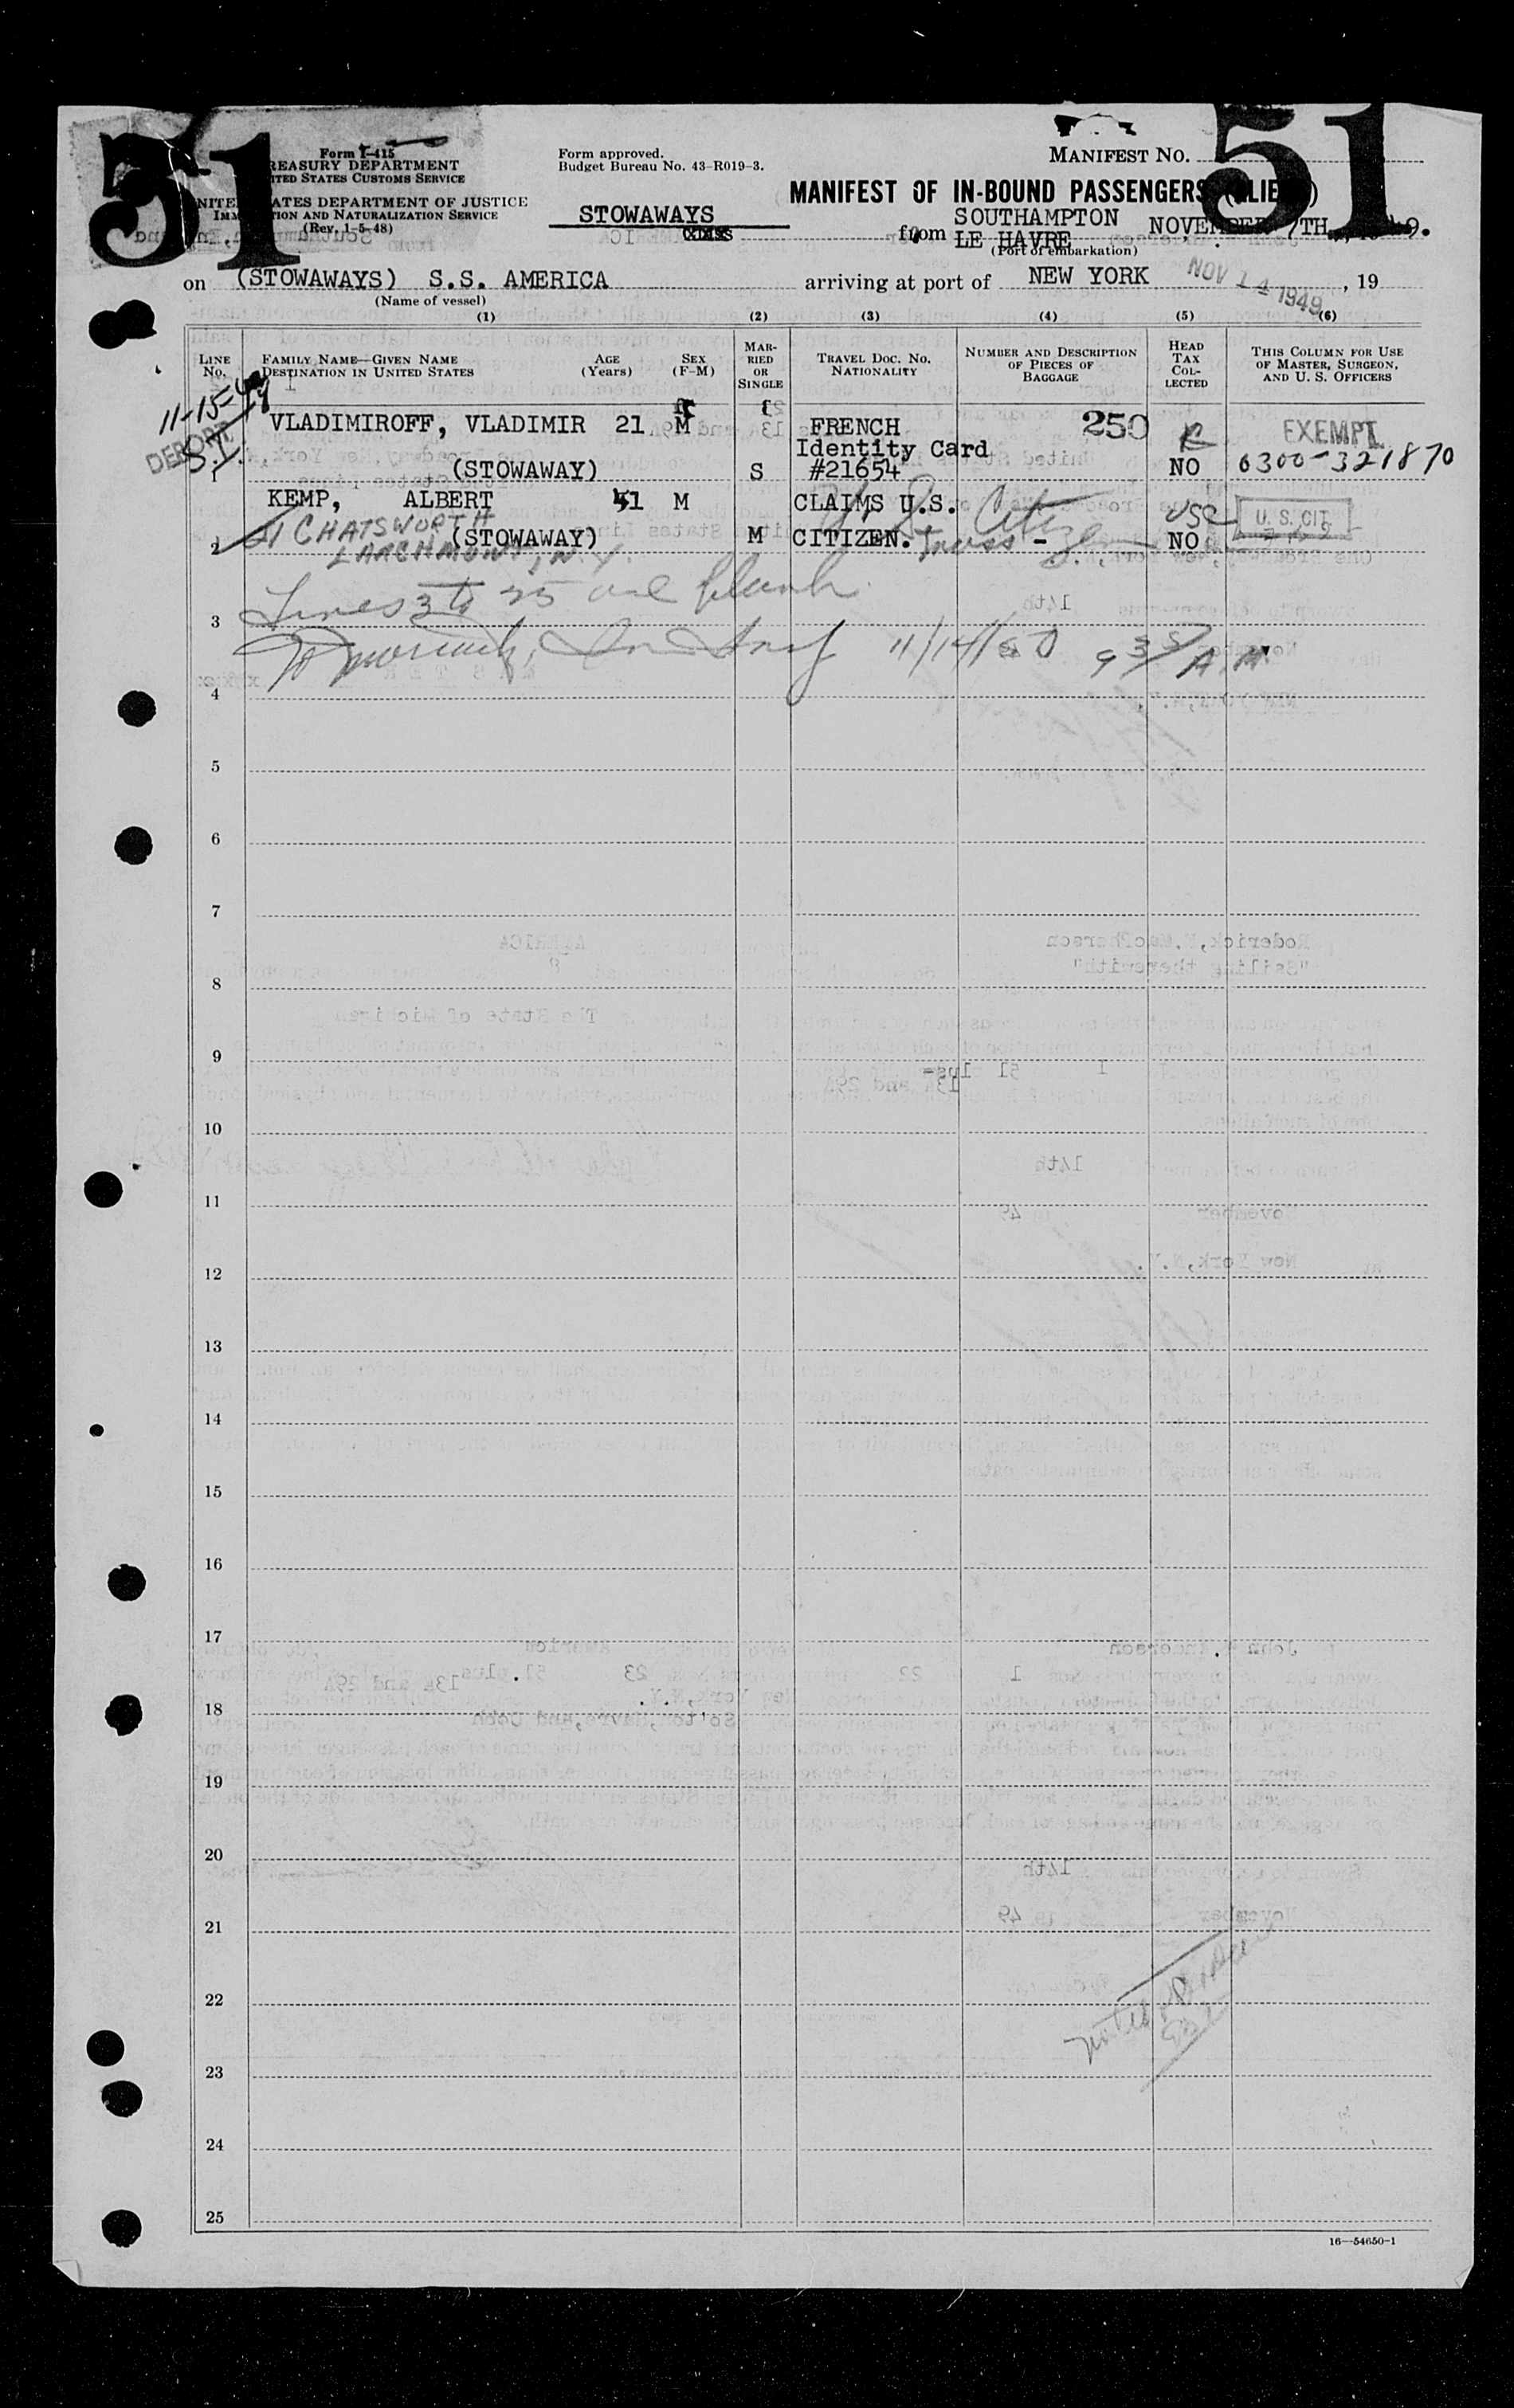 51
51
Form I-415
TREASURY DEPARTMENT
UNITED STATES CUSTOMS SERVICE
UNITED STATES DEPARTMENT OF JUSTICE
IMMIGRATION AND NATURALIZATION SERVICE
(Rev. 1-5-48)
Form approved.
Budget Bureau No. 43-R019-3.
MANIFEST NO.
MANIFEST OF IN-BOUND PASSENGERS (ALIENS)
STOWAWAYS
from SOUTHAMPTON
LE HAVRE
(Port of embarkation)
NOVEMBER 7TH, 1949.
on (STOWAWAYS) S.S. AMERICA
(Name of vessel)
arriving at port of NEW YORK NOV 14 1949, 19
(1) (2) (3) (4) (5) (6)
LINE No.
FAMILY NAME—GIVEN NAME
DESTINATION IN UNITED STATES
AGE (Years)
SEX (F-M)
MARRIED OR SINGLE
TRAVEL DOC. NO. NATIONALITY
NUMBER AND DESCRIPTION OF PIECES OF BAGGAGE
HEAD TAX COLLECTED
THIS COLUMN FOR USE OF MASTER, SURGEON, AND U. S. OFFICERS
11-15-49
DEPORT
S.I.
VLADIMIROFF, VLADIMIR 21 M FRENCH 250 EXEMPT
Identity Card
1 (STOWAWAY) S #21654 NO 0300-321870
KEMP, ALBERT 41 M CLAIMS U.S. USC U. S. CIT
2 (STOWAWAY) M CITIZEN. NO
U.S. Citizen
41 CHATSWORTH
LARCHMONT, N.Y.
Lines 3 to 25 are blank
3
11/14/50 9 35/A.M
4
5
6
7
8
9
10
11
12
13
14
15
16
17
18
19
20
21
22
23
24
25
16—54650-1